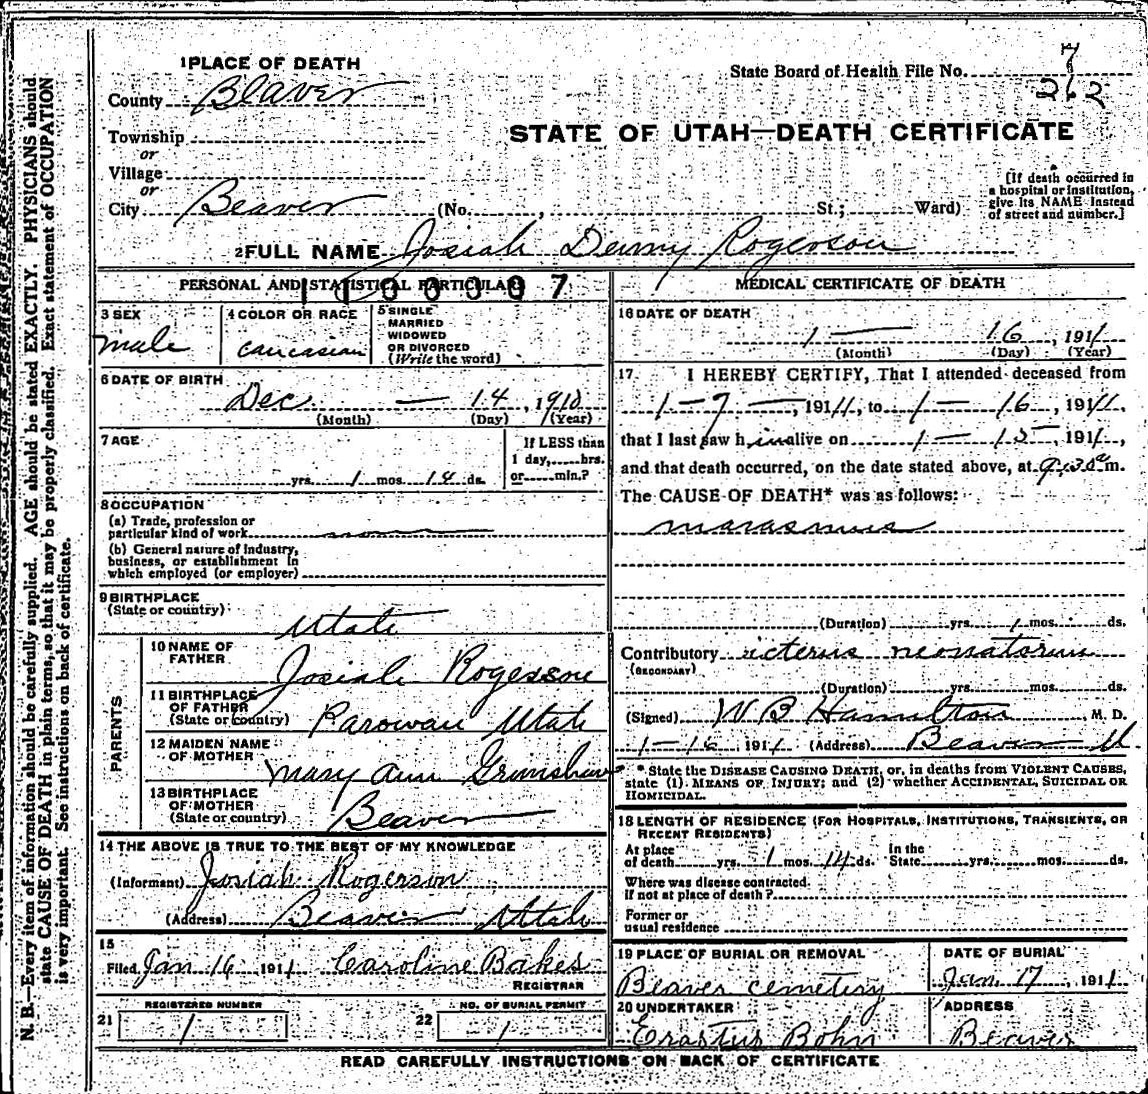 1 PLACE OF DEATH
County Beaver
State Board of Health File No. 7
262
Township
or
Village
or
City Beaver (No. , St.; Ward)
STATE OF UTAH—DEATH CERTIFICATE
[If death occurred in
a hospital or institution,
give its NAME instead
of street and number.]
2 FULL NAME Josiah Denny Rogerson
PERSONAL AND STATISTICAL PARTICULARS
3 SEX
male
4 COLOR OR RACE
caucasian
5 SINGLE
MARRIED
WIDOWED
OR DIVORCED
(Write the word)
6 DATE OF BIRTH
Dec. — 14, 1910
(Month) (Day) (Year)
7 AGE
If LESS than
1 day, hrs.
or min.?
yrs. 1 mos. 14 ds.
8 OCCUPATION
(a) Trade, profession or
particular kind of work
(b) General nature of industry,
business, or establishment in
which employed (or employer)
9 BIRTHPLACE
(State or country)
Utah
PARENTS
10 NAME OF
FATHER
Josiah Rogerson
11 BIRTHPLACE
OF FATHER
(State or country) Parowan Utah
12 MAIDEN NAME
OF MOTHER
Mary Ann Grimshaw
13 BIRTHPLACE
OF MOTHER
(State or country) Beaver
14 THE ABOVE IS TRUE TO THE BEST OF MY KNOWLEDGE
(Informant) Josiah Rogerson
(Address) Beaver Utah
15
Filed Jan 16 1911 Caroline Bakes
REGISTRAR
REGISTERED NUMBER
21 1
NO. OF BURIAL PERMIT
22 1
MEDICAL CERTIFICATE OF DEATH
16 DATE OF DEATH
1 — 16, 1911
(Month) (Day) (Year)
17 I HEREBY CERTIFY, That I attended deceased from
1 – 7 –, 1911, to 1 – 16, 1911,
that I last saw him alive on 1 – 15, 1911,
and that death occurred, on the date stated above, at 9:30 a m.
The CAUSE OF DEATH* was as follows:
marasmus
(Duration) yrs. 1 mos. ds.
Contributory icterus neonatorum
(SECONDARY)
(Duration) yrs. mos. ds.
(Signed) W B Hamilton, M. D.
1–16, 1911 (Address) Beaver U
* State the DISEASE CAUSING DEATH, or, in deaths from VIOLENT CAUSES,
state (1) MEANS OF INJURY; and (2) whether ACCIDENTAL, SUICIDAL OR
HOMICIDAL.
18 LENGTH OF RESIDENCE (FOR HOSPITALS, INSTITUTIONS, TRANSIENTS, OR
RECENT RESIDENTS)
At place
of death yrs. 1 mos. 14 ds.
In the
State yrs. mos. ds.
Where was disease contracted.
if not at place of death?
Former or
usual residence
19 PLACE OF BURIAL OR REMOVAL
Beaver cemetery
DATE OF BURIAL
Jan. 17, 1911
20 UNDERTAKER
Erastus Bohn
ADDRESS
Beaver
READ CAREFULLY INSTRUCTIONS ON BACK OF CERTIFICATE
N. B.—Every item of information should be carefully supplied. AGE should be stated EXACTLY. PHYSICIANS should
state CAUSE OF DEATH in plain terms, so that it may be properly classified. Exact statement of OCCUPATION
is very important. See instructions on back of certificate.